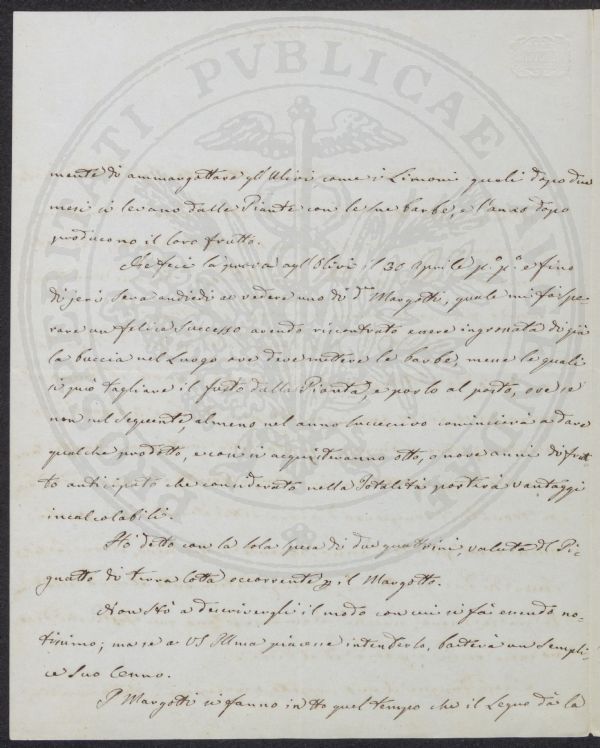 mente di ammargottare gli Ulivi, come i Limoni quali dopo due
mesi si levano dalle Piante con le sue barbe, e l'anno dopo
producono il loro frutto.
Ne feci la prova agl'Olivi il 30 Aprile p.º p.º e fino
di jeri sera andiedi a vedere uno di d.i Margotti, quale mi fa spe-
rare un felice successo avendo riscontrato essere ingrossata di già
la buccia nel Luogo ove deve mettere le barbe, messe le quali
si può tagliare il fusto dalla Pianta, e porlo al posto, ove se
non nel seguente, almeno nel anno successivo comincierà a dare
qualche prodotto, e così si acquisteranno otto, o nove anni di frut-
to anticipato che considerato nella Totalità porterà vantaggi
incalcolabili.
Hò detto con la sola spesa di due quattrini, valuta del Pi-
gnatto di terra cotta occorrente p il Margotto.
Non stò a descrivergli il modo con cui si fà essendo no-
tissimo; ma se a VS Illma piacesse intenderlo, basterà un sempli-
ce suo Cenno.
I Margotti si fanno in tto quel tempo che il Legno dà la
PROSPERITATI PVBLICAE